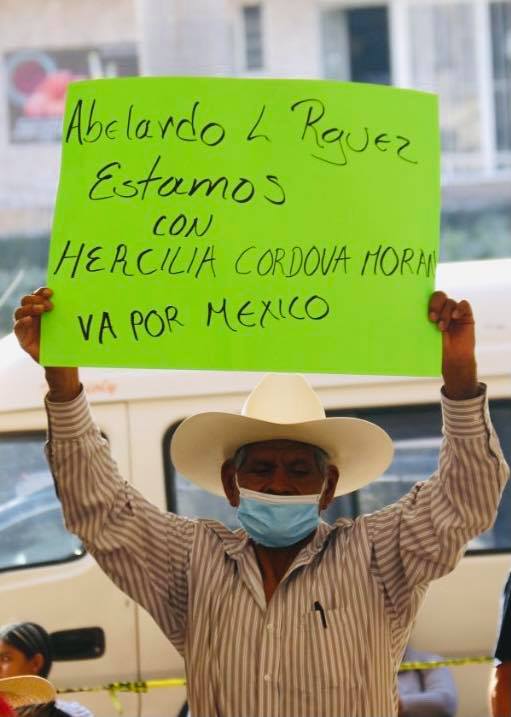 Abelardo L Rguez
Estamos
CON
HERCILIA CORDOVA MORAN
VA POR MEXICO